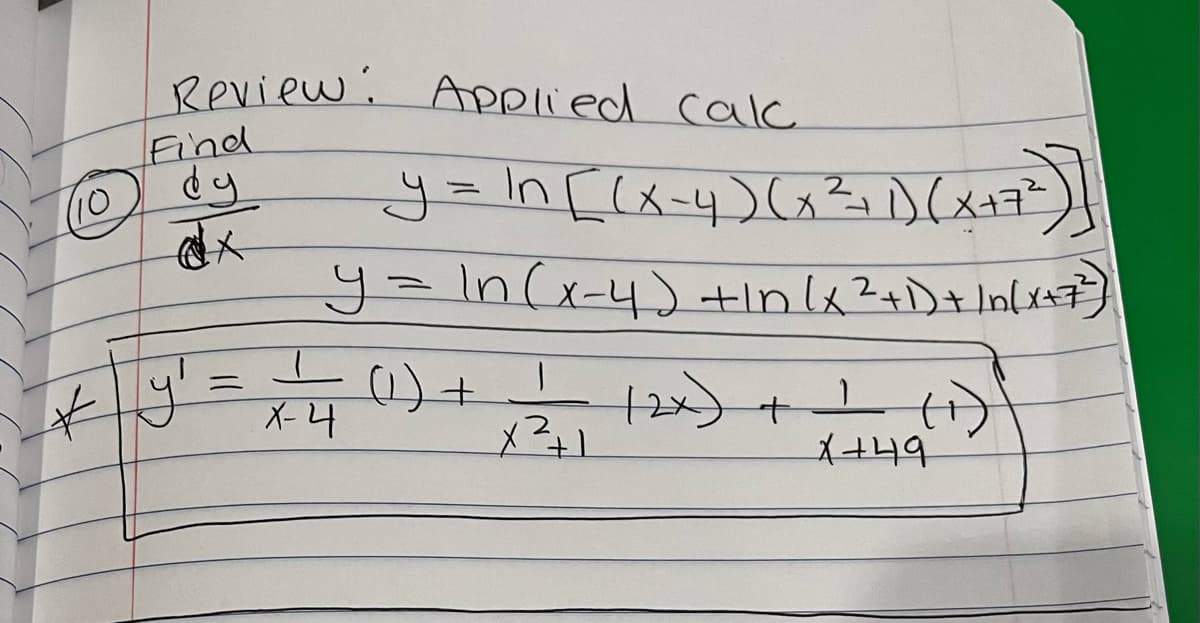 Review: Applied calc
Find
(10) dy/dx y = ln[(x-4)(x²+1)(x+7²)]
y = ln(x-4) + ln(x²+1) + ln(x+7²)
* y' = 1/(x-4) (1) + 1/(x²+1) (2x) + 1/(x+49) (1)